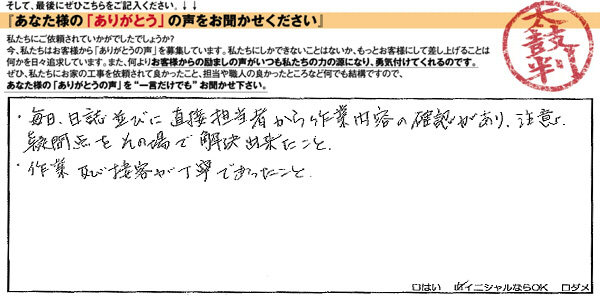 そして、最後にぜひこちらをご記入ください。↓↓
『あなた様の「ありがとう」の声をお聞かせください』
私たちにご依頼されていかがでしたでしょうか?
今、私たちはお客様から「ありがとうの声」を募集しています。私たちにしかできないことはないか、もっとお客様にして差し上げることは
何かを日々追求しています。また、何よりお客様からの励ましの声がいつも私たちの力の源になり、勇気付けてくれるのです。
ぜひ、私たちにお家の工事を依頼されて良かったこと、担当や職人の良かったところなど何でも結構ですので、
あなた様の「ありがとうの声」を"一言だけでも"お聞かせください。
太鼓判
・毎日、日誌並びに直接担当者から作業内容の確認があり、注意、
疑問点をその場で解決出来たこと。
・作業及び接客が丁寧であったこと。
□はい ☑イニシャルならOK □ダメ